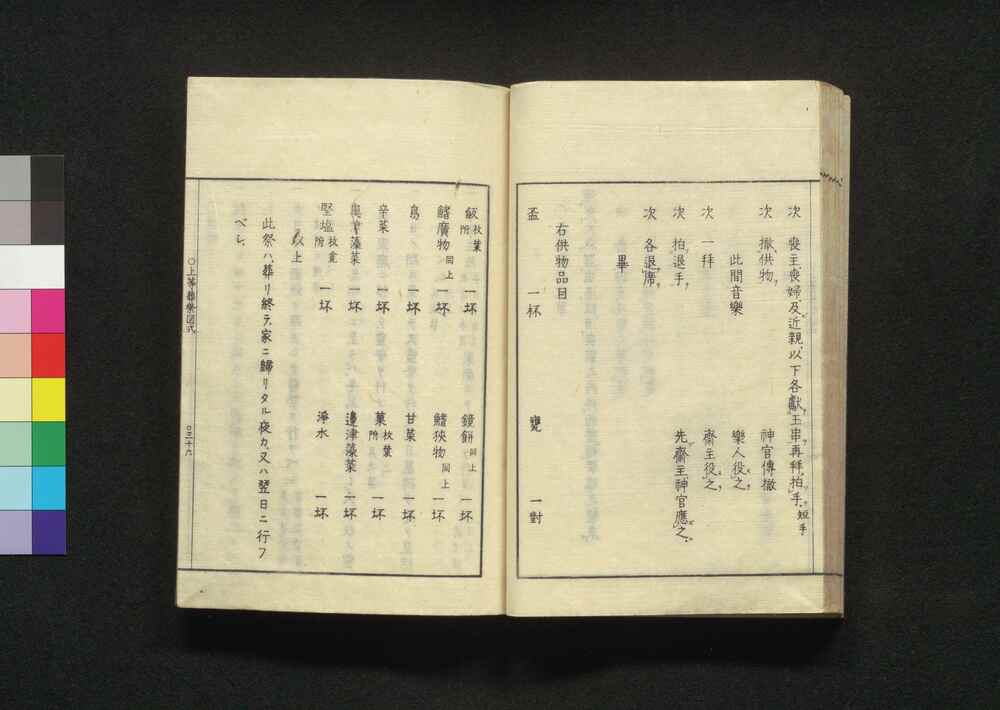 次 喪主、喪婦、及近親、以下各獻玉串再拜、拍手、短手
次 撤供物、 神官傳撤
此間音樂 樂人役之、
次 一拜 齋主役之、
次 拍退手、 先齋主、神官應之、
次 各退席、
畢
右供物品目
盃 一杯 甕 一對
飯枚葉附 一坏 鏡餅同上 一坏
鰭廣物同上 一坏 鰭狹物同上 一坏
鳥 一坏 甘菜 一坏
辛菜 一坏 菓枚葉附 一坏
奧津藻菜 一坏 邊津藻菜 一坏
堅塩枚葉附 一坏 淨水 一坏
以上
此祭ハ、葬リ終ヲ、家ニ歸リタル夜カ、又ハ翌日ニ行フ
ベシ、
○上等葬祭図式
○三十六